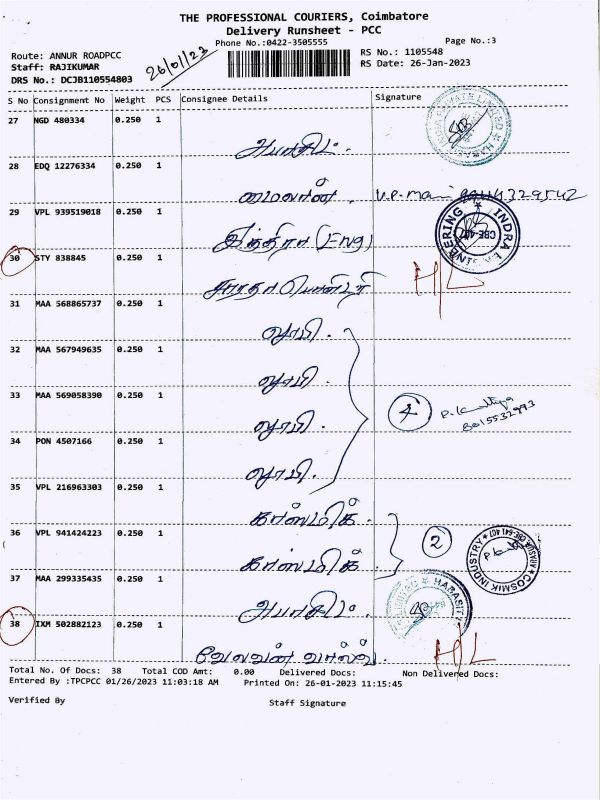 THE PROFESSIONAL COURIERS, Coimbatore
Delivery Runsheet - PCC
Phone No.:0422-3505555 Page No.:3
Route: ANNUR ROADPCC RS No.: 1105548
Staff: RAJIKUMAR RS Date: 26-Jan-2023
DRS No.: DCJB110554803 26/01/23
S No Consignment No Weight PCS Consignee Details Signature
27 NGD 480334 0.250 1
28 EDQ 12276334 0.250 1
29 VPL 939519018 0.250 1
இந்திரா (Eng)
30 STY 838845 0.250 1
H/L
31 MAA 568865737 0.250 1
32 MAA 567949635 0.250 1
33 MAA 569058390 0.250 1
4
8015532993
34 PON 4507166 0.250 1
35 VPL 216963303 0.250 1
காஸ்மிக்
36 VPL 941424223 0.250 1
2
காஸ்மிக்
COSMIK INDUSTRY
37 MAA 299335435 0.250 1
HABASIT
38 IXM 502882123 0.250 1
வேலவன் வால்வ்
H/L
Total No. Of Docs: 38 Total COD Amt: 0.00 Delivered Docs: Non Delivered Docs:
Entered By :TPCPCC 01/26/2023 11:03:18 AM Printed On: 26-01-2023 11:15:45
Verified By Staff Signature